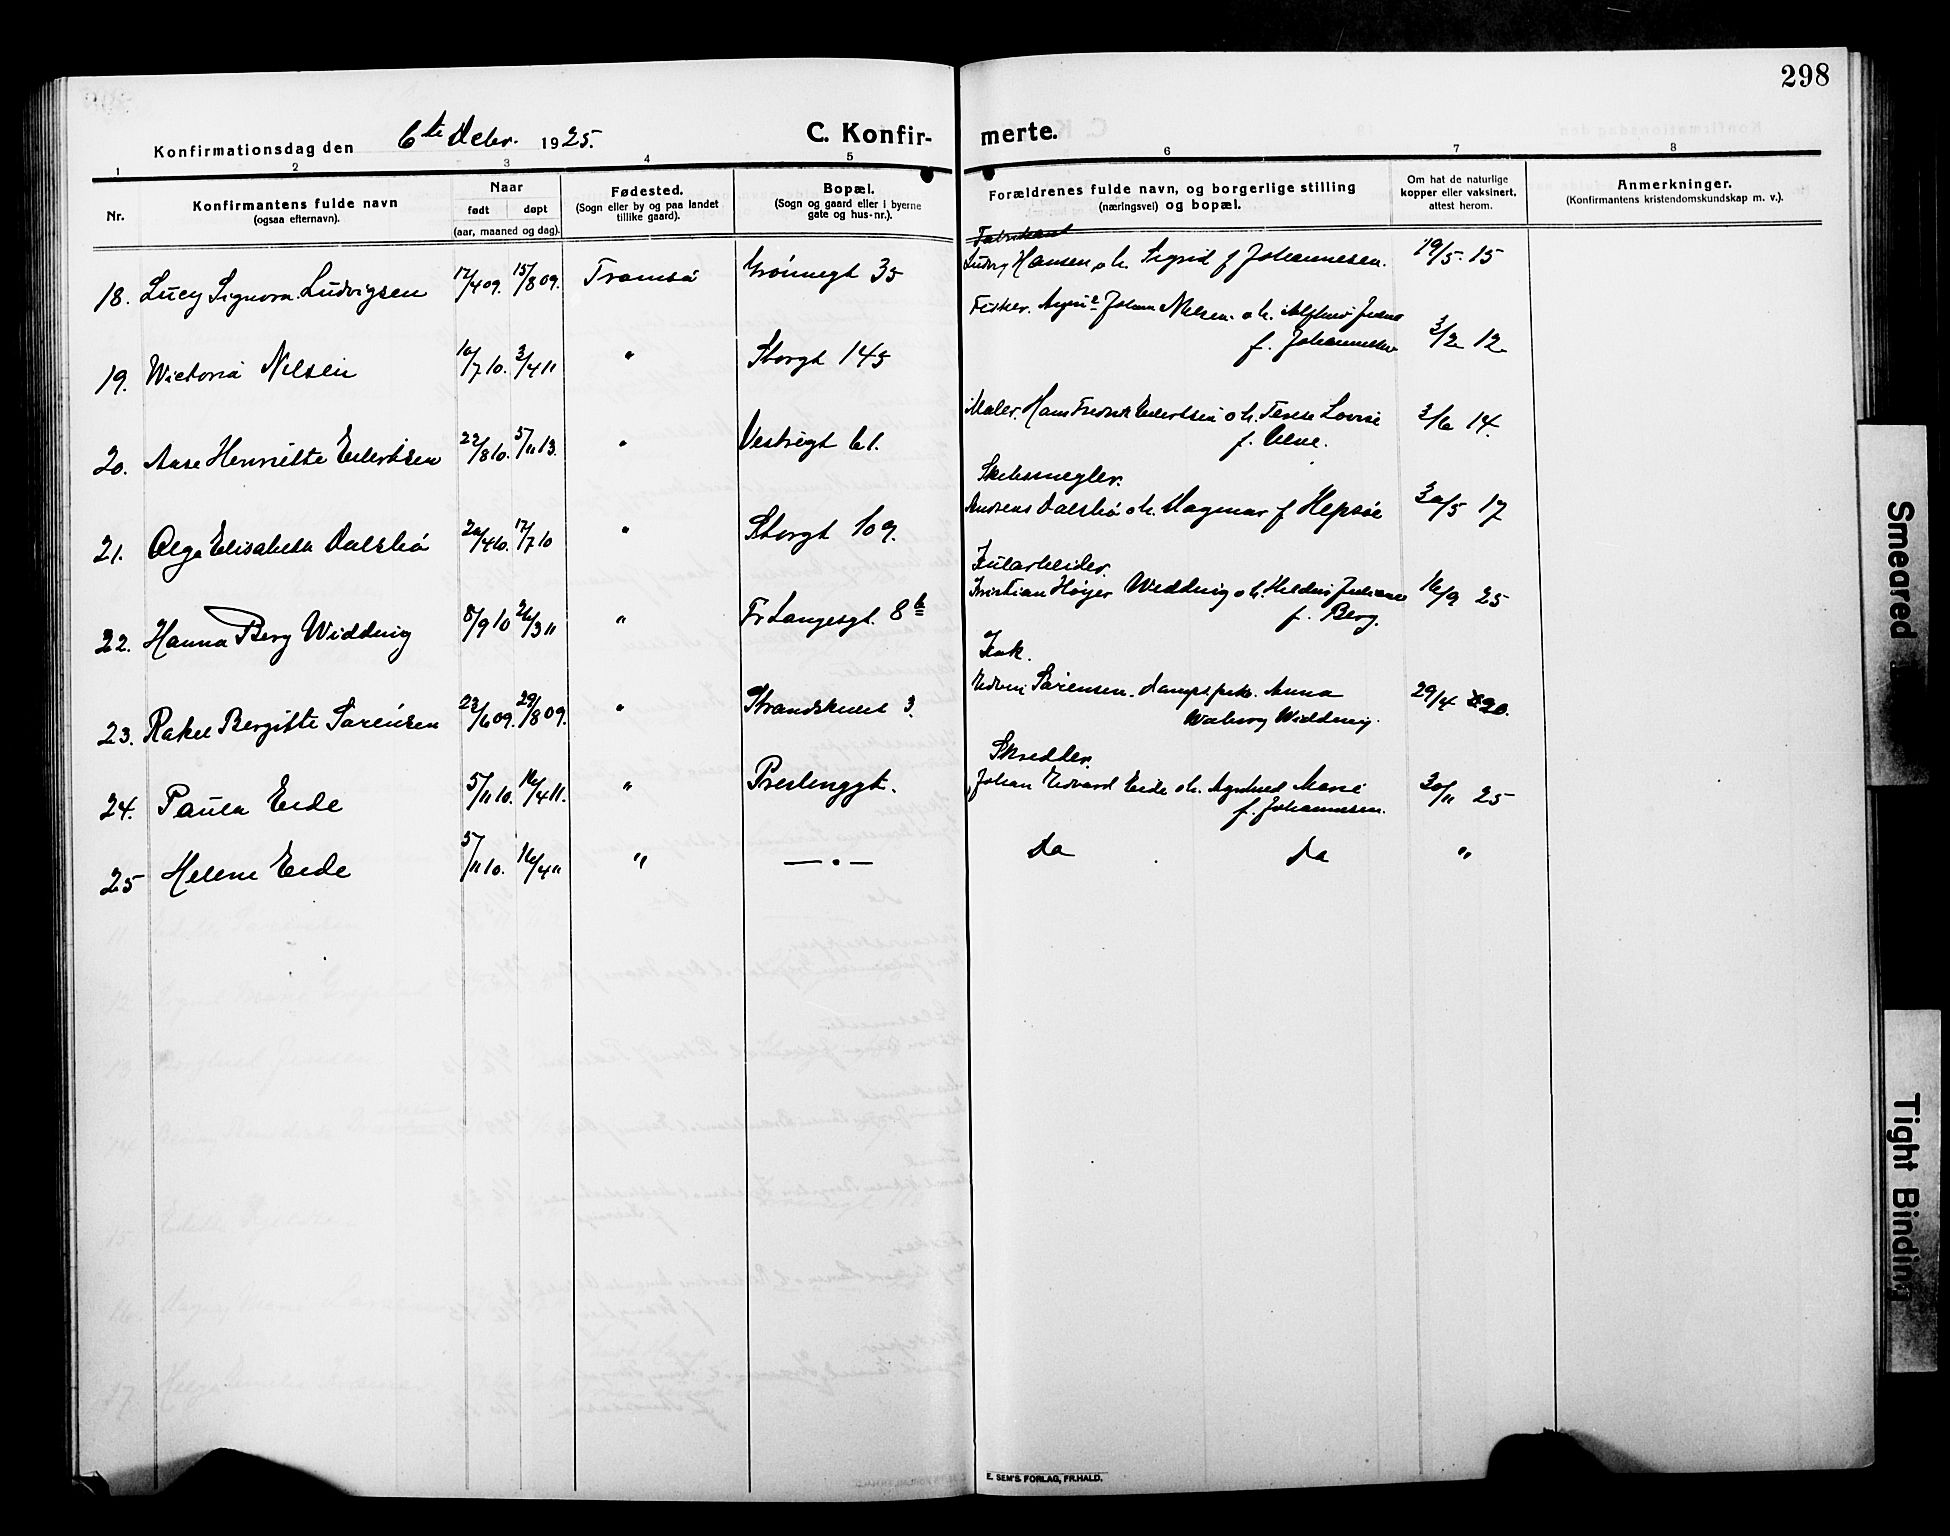 298
Konfirmationsdag den 6te Debr. 1925.
C. Konfir- merte.
1 2 3 4 5 6 7 8
Nr.
Konfirmantens fulde navn
(ogsaa efternavn).
Naar
født døpt
(aar, maaned og dag).
Fødested.
(Sogn eller by og paa landet
tillike gaard).
Bopæl.
(Sogn og gaard eller i byerne
gate og hus-nr.).
Forældrenes fulde navn, og borgerlige stilling
(næringsvei) og bopæl.
Om hat de naturlige
kopper eller vaksinert,
attest herom.
Anmerkninger.
(Konfirmantens kristendomskundskap m. v.).
Fabrikant
18. Lucy Signora Ludvigsen 17/4 09. 15/8 09. Tromsö Grönnegt 35 Ludvig Hansen o h. Sigrid f Johannesen. 19/5 15
Fisker. Johan Nilsen. o h. Alfhild
f. Johannesen
19. Wictoria Nilsen 10/7 10. 3/4 11 " Storgt 145 3/2 12
20. Aase Henriette Eilertsen 22/8 10. 5/11 13. " Vestregt 61. Maler. Hans Fredrik Eilertsen o h. Terese Lovise 3/6 14.
f.
Skibsmegler.
21. Olga Elisabeth Dalsbö 20/4 10. 17/7 10 " Storgt 109. Andreas Dalsbö o h. Dagmar f Hepsöe 30/5 17
Kularbeider.
22. Hanna Berg Widding 8/9 10 26/3 11 " Fr Langesgt. 8 b Kristian Höyer Widding o h. Juliane 16/9 25
f. Berg.
Kok.
23. Rakel Bergitte Sörensen 22/6 09. 29/8 09. " Strandskillet 3. Edvin Sörensen. Anna 29/4 20.
Walborg Widding.
Skredder.
24. Paula Eide 5/11 10. 16/4 11. " Prestenggt. Johan Edvard Eide o h. Marie 30/11 25
f. Johannesen.
25 Helene Eide 5/11 10. 16/4 11 " — " — Do Do "
E. SEM'S FORLAG, FR.HALD.
Smeared
Tight Binding